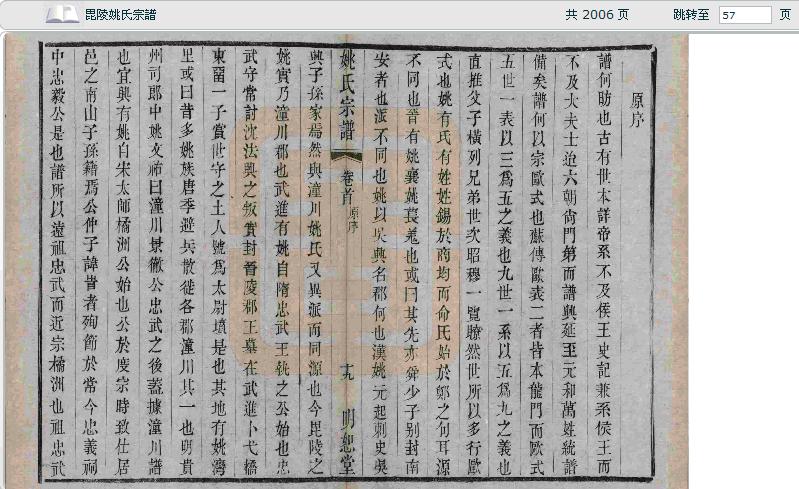 毘陵姚氏宗譜
共 2006 页
跳转至 57 页
原序
譜何昉也古有世本詳帝系不及侯王史記兼系侯王而
不及大夫士迨六朝尚門第而譜興延至元和萬姓統譜
備矣譜何以宗歐式也蘇傳歐表二者皆本龍門而歐式
五世一表以三爲五之義也九世一系以五爲九之義也
直推父子橫列兄弟世次昭穆一覽瞭然世所以多行歐
式也姚有氏有姓姓錫於商均而命氏始於鄭之句耳源
不同也晉有姚襄姚萇羌也或曰其先亦舜少子别封南
安者也派不同也姚以吳興名郡何也漢姚元起刺史吳
姚氏宗譜 卷首 原序 十九 明恕堂
興子孫家焉然與潼川姚氏又異派而同源也今毘陵之
姚實乃潼川郡也武進有姚自隋忠武王之公始也忠
武守常討沈法興之叛賞封晉陵郡王墓在武進卜弋橋
東留一子賞世守之土人號爲太尉墳是也其地有姚灣
里或曰昔多姚族唐季避兵散徙各郡潼川其一也明貴
州司郎中姚文神曰潼川景徹公忠武之後蓋據潼川譜
也宜興有姚自宋太師橘洲公始也公於度宗時致仕居
邑之南山子孫籍焉公仲子諱訔者殉節於常今忠義祠
中忠毅公是也譜所以遠祖忠武而近宗橘洲也祖忠武